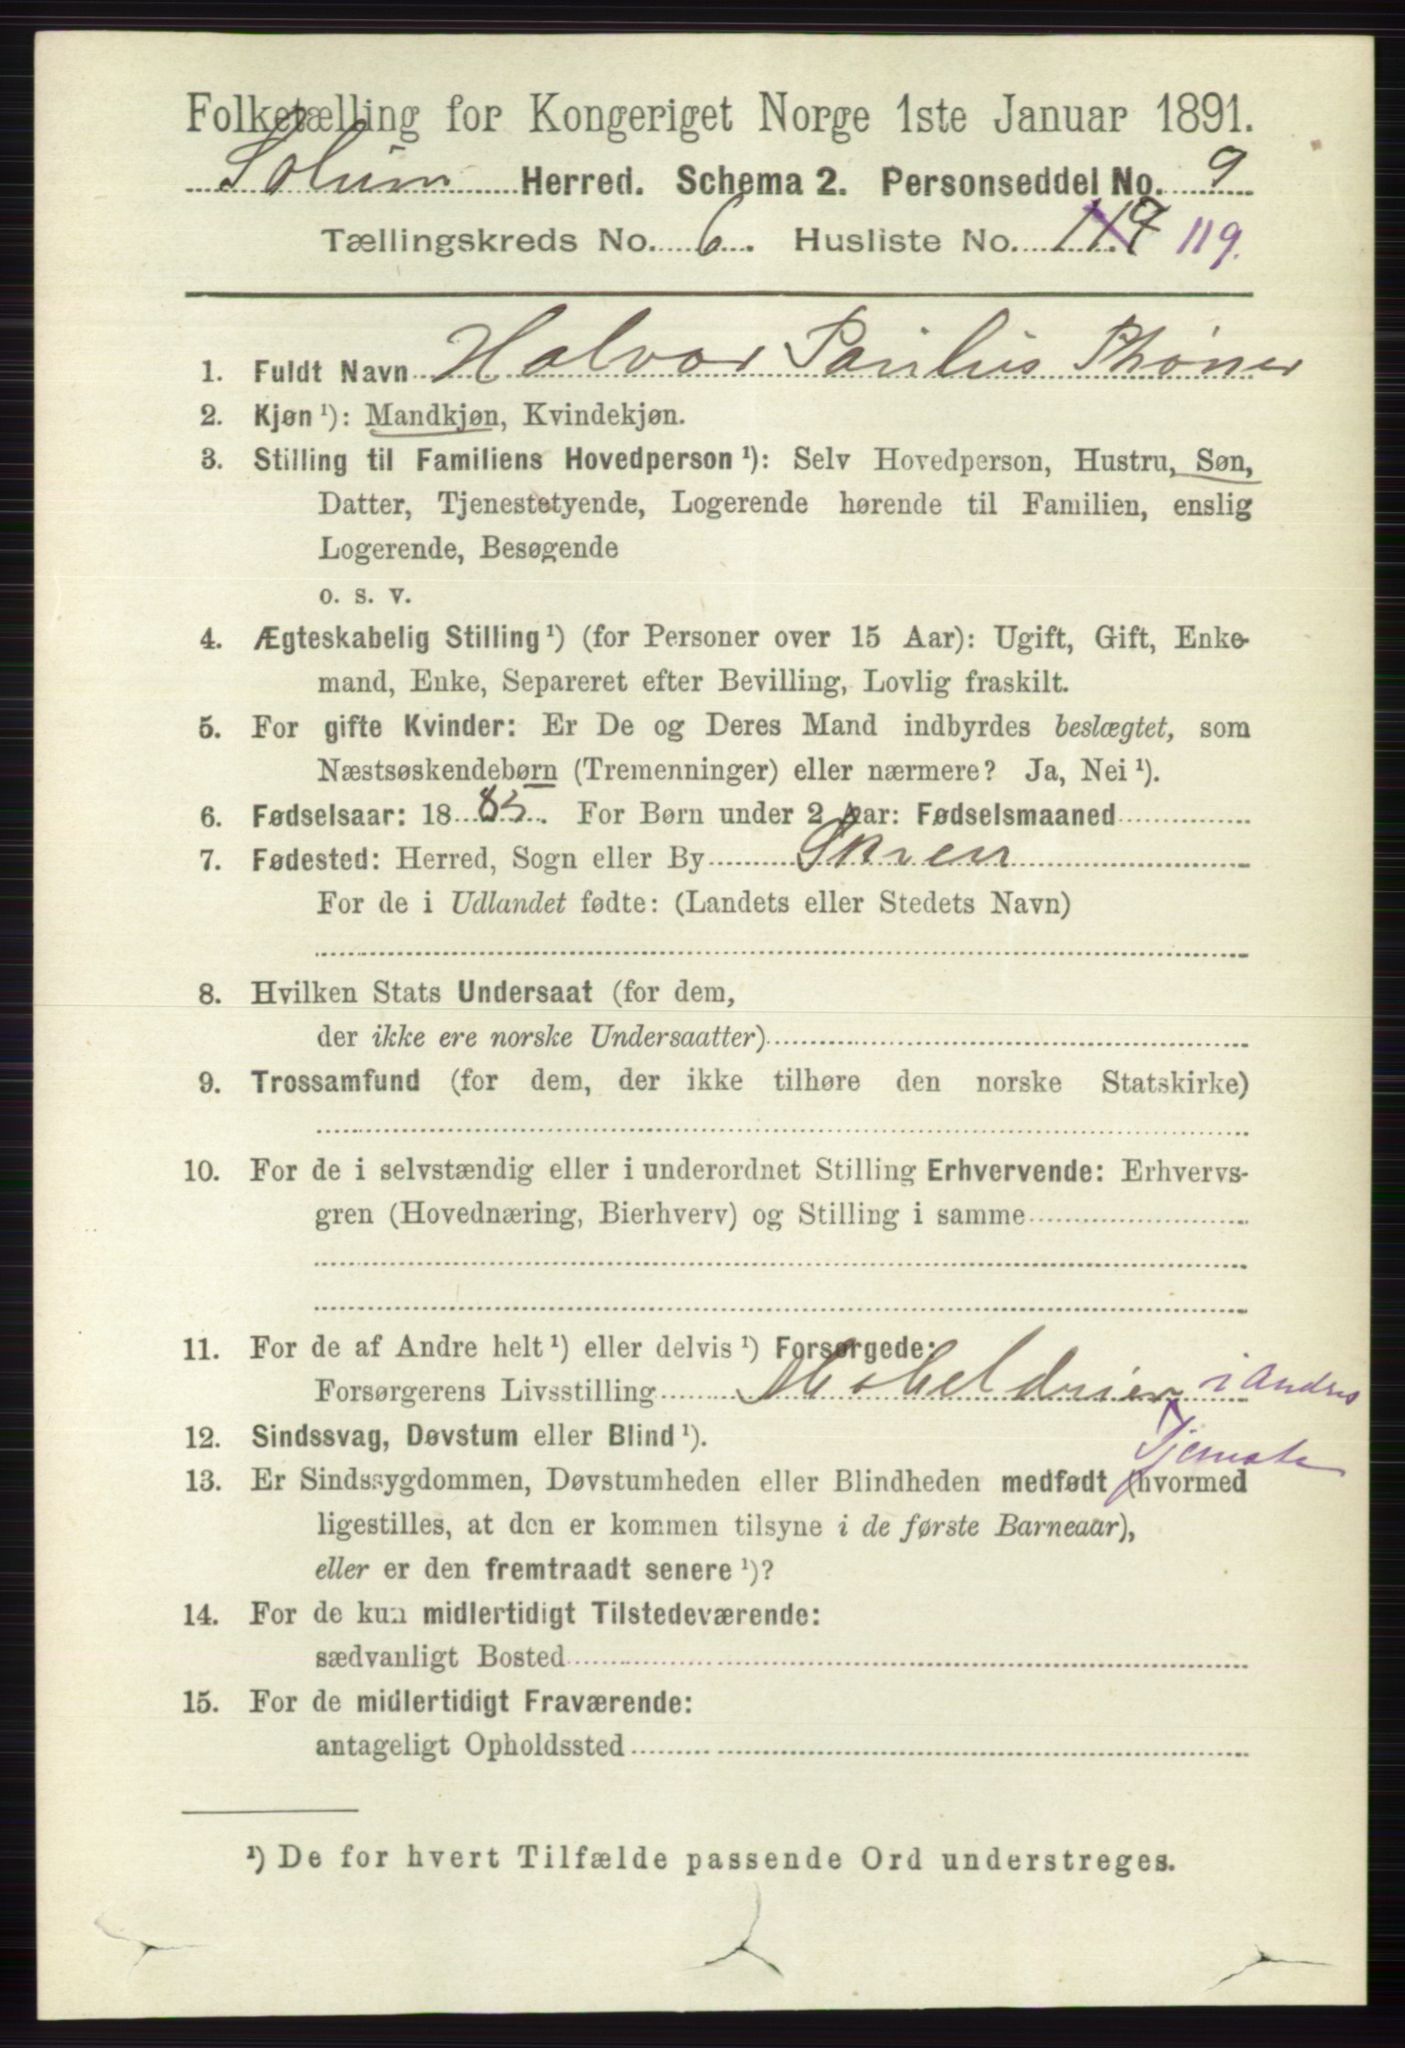 Folketælling for Kongeriget Norge 1ste Januar 1891.
Solum Herred. Schema 2. Personseddel No. 9
Tællingskreds No. 6. Husliste No. 119.
1. Fuldt Navn Halvor Paulius Thoner
2. Kjøn ¹): Mandkjøn, Kvindekjøn.
3. Stilling til Familiens Hovedperson ¹): Selv Hovedperson, Hustru, Søn,
Datter, Tjenestetyende, Logerende hørende til Familien, enslig
Logerende, Besøgende
o. s. v.
4. Ægteskabelig Stilling ¹) (for Personer over 15 Aar): Ugift, Gift, Enke-
mand, Enke, Separeret efter Bevilling, Lovlig fraskilt.
5. For gifte Kvinder: Er De og Deres Mand indbyrdes beslægtet, som
Næstsøskendebørn (Tremenninger) eller nærmere? Ja, Nei ¹).
6. Fødselsaar: 1885. For Børn under 2 Aar: Fødselsmaaned
7. Fødested: Herred, Sogn eller By Skien
For de i Udlandet fødte: (Landets eller Stedets Navn)
8. Hvilken Stats Undersaat (for dem,
der ikke ere norske Undersaatter)
9. Trossamfund (for dem, der ikke tilhøre den norske Statskirke)
10. For de i selvstændig eller i underordnet Stilling Erhvervende: Erhvervs-
gren (Hovednæring, Bierhverv) og Stilling i samme
11. For de af Andre helt ¹) eller delvis ¹) Forsørgede:
Forsørgerens Livsstilling i Andres
Tjeneste
12. Sindssvag, Døvstum eller Blind ¹).
13. Er Sindssygdommen, Døvstumheden eller Blindheden medfødt (hvormed
ligestilles, at den er kommen tilsyne i de første Barneaar),
eller er den fremtraadt senere ¹)?
14. For de kun midlertidigt Tilstedeværende:
sædvanligt Bosted
15. For de midlertidigt Fraværende:
antageligt Opholdssted
¹) De for hvert Tilfælde passende Ord understreges.